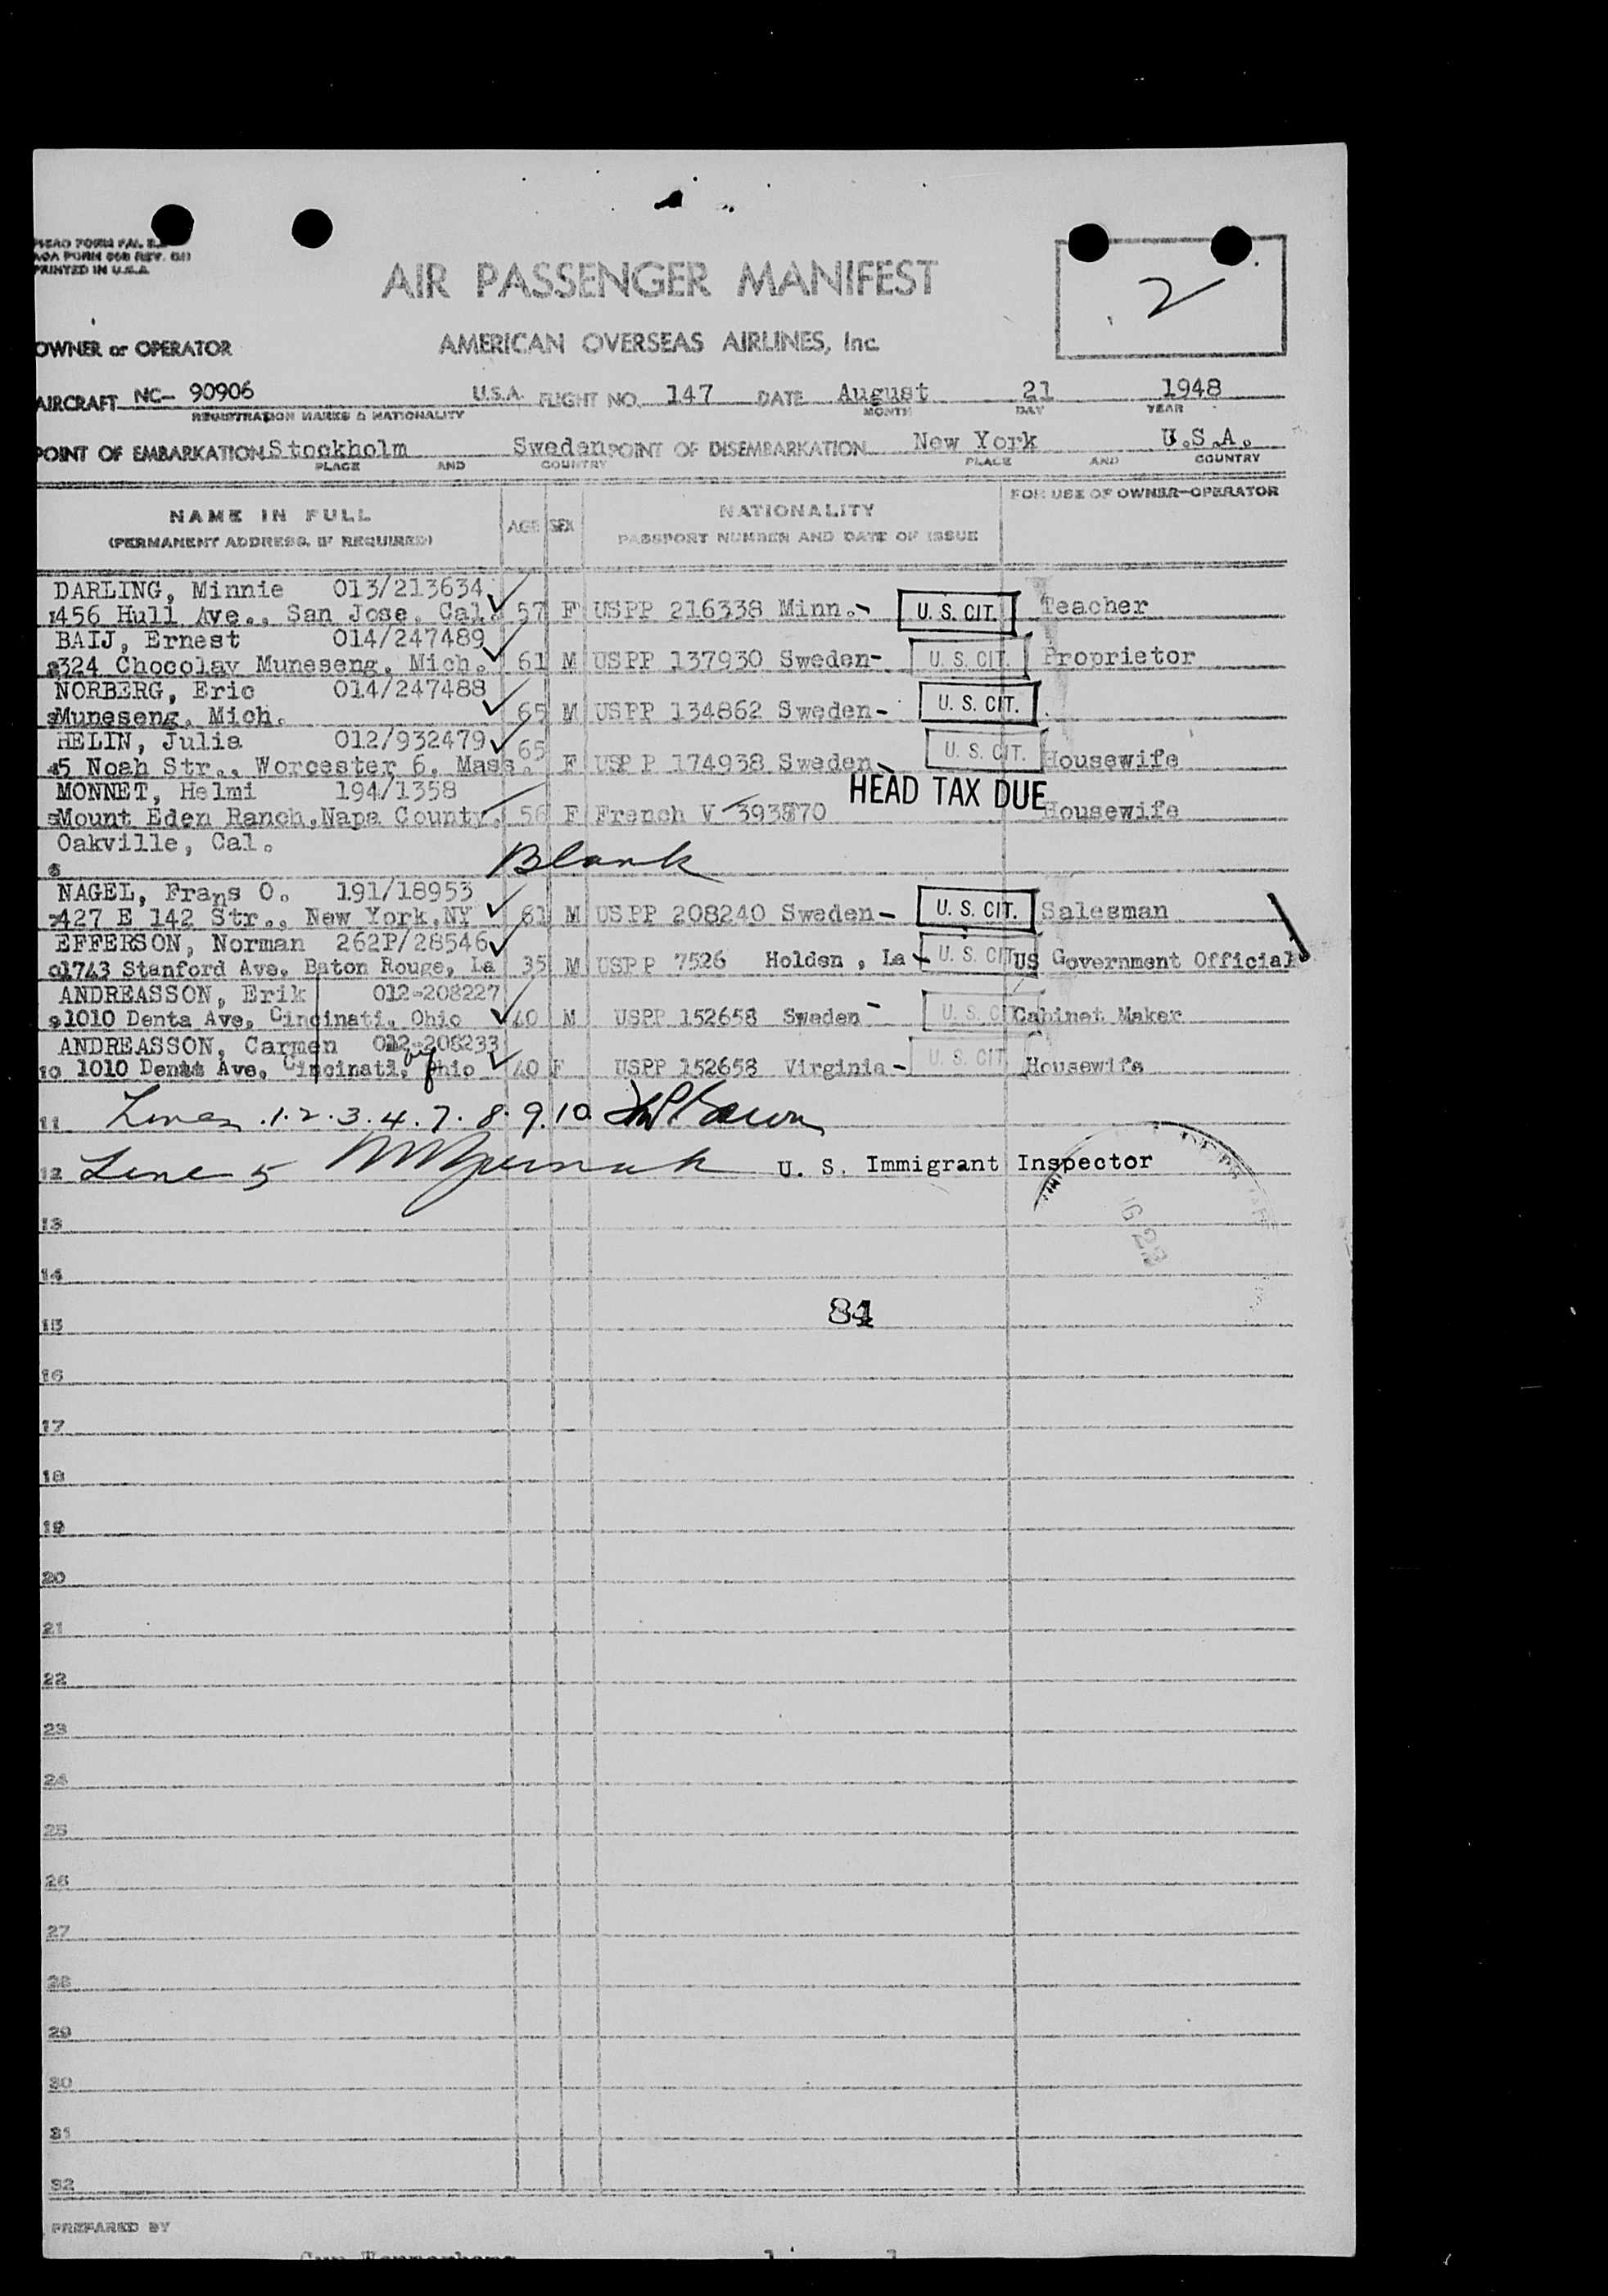 AOA FORM 66B (REV.
PRINTED IN U.S.A.
2
AIR PASSENGER MANIFEST
OWNER or OPERATOR AMERICAN OVERSEAS AIRLINES, Inc.
AIRCRAFT NC- 90906 U.S.A. FLIGHT NO. 147 DATE August 21 1948
REGISTRATION MARKS & NATIONALITY MONTH DAY YEAR
POINT OF EMBARKATION Stockholm Sweden POINT OF DISEMBARKATION New York U.S.A.
PLACE AND COUNTRY PLACE AND COUNTRY
NAME IN FULL AGE SEX NATIONALITY FOR USE OF OWNER-OPERATOR
(PERMANENT ADDRESS, IF REQUIRED) PASSPORT NUMBER AND DATE OF ISSUE
DARLING, Minnie 013/213634
1 456 Hull Ave., San Jose, Cal. 57 F USPP 216338 Minn.- U. S. CIT. Teacher
BAIJ, Ernest 014/247489
2 324 Chocolay Muneseng, Mich. 61 M USPP 137930 Sweden- U. S. CIT. Proprietor
NORBERG, Eric 014/247488
3 Muneseng, Mich. 65 M USPP 134862 Sweden- U. S. CIT.
HELIN, Julia 012/932479
4 5 Noah Str., Worcester 6, Mass. 65 F USPP 174938 Sweden- U. S. CIT. Housewife
MONNET, Helmi 194/1358 HEAD TAX DUE
5 Mount Eden Ranch, Napa County, 56 F French V Housewife
Oakville, Cal.
6 Blank
NAGEL, Frans O. 191/18953
7 427 E 142 Str., New York,NY 61 M USPP 208240 Sweden- U. S. CIT. Salesman
EFFERSON, Norman 262P/28546
1743 Stanford Ave, Baton Rouge, La 35 M USPP 7526 Holden , La- U. S. CIT US Government Official
ANDREASSON, Erik 012-208227
9 1010 Denta Ave, Cincinati, Ohio 40 M USPP 152658 Sweden- U. S. C Cabinet Maker
ANDREASSON, Carmen 012-208233
10 1010 Ave, Cincinati, Ohio 40 F USPP 152658 Virginia- U. S. CIT. Housewife
11 Lines 1. 2. 3. 4. 7. 8. 9. 10
12 Line 5 U. S. Immigrant Inspector
13
14
84
15
16
17
18
19
20
21
22
23
24
25
26
27
28
29
30
31
32
PREPARED BY